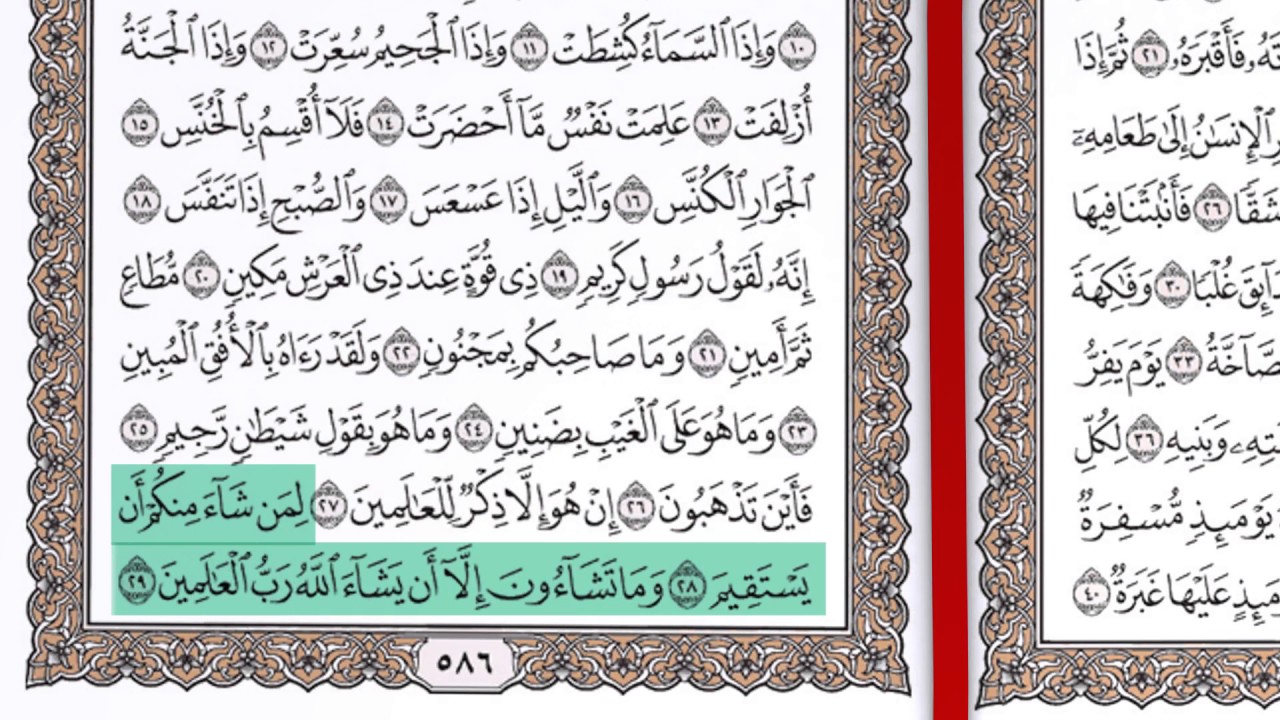 ١٠ وَإِذَا ٱلسَّمَآءُ كُشِطَتْ ١١ وَإِذَا ٱلْجَحِيمُ سُعِّرَتْ ١٢ وَإِذَا ٱلْجَنَّةُ
أُزْلِفَتْ ١٣ عَلِمَتْ نَفْسٌ مَّآ أَحْضَرَتْ ١٤ فَلَآ أُقْسِمُ بِٱلْخُنَّسِ ١٥
ٱلْجَوَارِ ٱلْكُنَّسِ ١٦ وَٱلَّيْلِ إِذَا عَسْعَسَ ١٧ وَٱلصُّبْحِ إِذَا تَنَفَّسَ ١٨
إِنَّهُۥ لَقَوْلُ رَسُولٍ كَرِيمٍ ١٩ ذِى قُوَّةٍ عِندَ ذِى ٱلْعَرْشِ مَكِينٍ ٢٠ مُّطَاعٍ
ثَمَّ أَمِينٍ ٢١ وَمَا صَاحِبُكُم بِمَجْنُونٍ ٢٢ وَلَقَدْ رَءَاهُ بِٱلْأُفُقِ ٱلْمُبِينِ
٢٣ وَمَا هُوَ عَلَى ٱلْغَيْبِ بِضَنِينٍ ٢٤ وَمَا هُوَ بِقَوْلِ شَيْطَٰنٍ رَّجِيمٍ ٢٥
فَأَيْنَ تَذْهَبُونَ ٢٦ إِنْ هُوَ إِلَّا ذِكْرٌ لِّلْعَٰلَمِينَ ٢٧ لِمَن شَآءَ مِنكُمْ أَن
يَسْتَقِيمَ ٢٨ وَمَا تَشَآءُونَ إِلَّآ أَن يَشَآءَ ٱللَّهُ رَبُّ ٱلْعَٰلَمِينَ ٢٩
٥٨٦
فَأَقْبَرَهُۥ ٢١ ثُمَّ إِذَا
ٱلْإِنسَٰنُ إِلَىٰ طَعَامِهِۦٓ
شَقًّا ٢٦ فَأَنۢبَتْنَا فِيهَا
غُلْبًا ٣٠ وَفَٰكِهَةً
٣٣ يَوْمَ يَفِرُّ
وَبَنِيهِ ٣٦ لِكُلِّ
يَوْمَئِذٍ مُّسْفِرَةٌ
عَلَيْهَا غَبَرَةٌ ٤٠